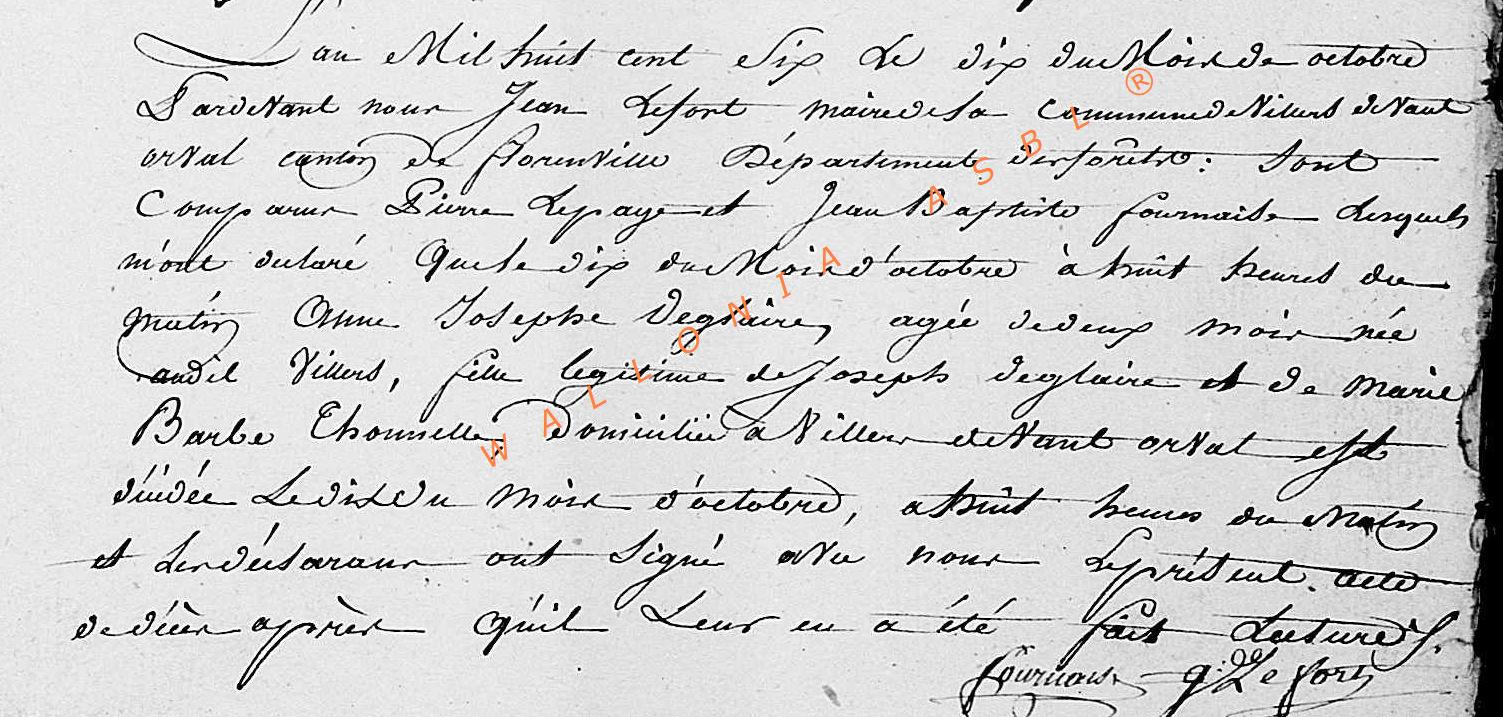 L'an Mil huit cent Six Le dix du Mois de octobre
Pardevant nous Jean Lefort maire de la commune de Villers devant
orval canton de florenville Département des forêtes : Sont
Comparus Pierre Lepage et Jean Baptiste fournaise Lesquels
m'ont déclaré Que le dix du Mois d'octobre à huit heures du
matin Anne Josephe Deglaire, agée de deux mois née
audit Villers, fille legitime de Joseph Deglaire et de Marie
Barbe Thonnelle, domiciliée a Villers devant orval est
décédée Le dix du mois d'octobre, a huit heures du Matin
et Les déclarans ont Signé avec nous Le présent acte
de décès après qu'il Leur en a été fait Lecture
fournaise g. Le fort
WALLONIA ASBL ®